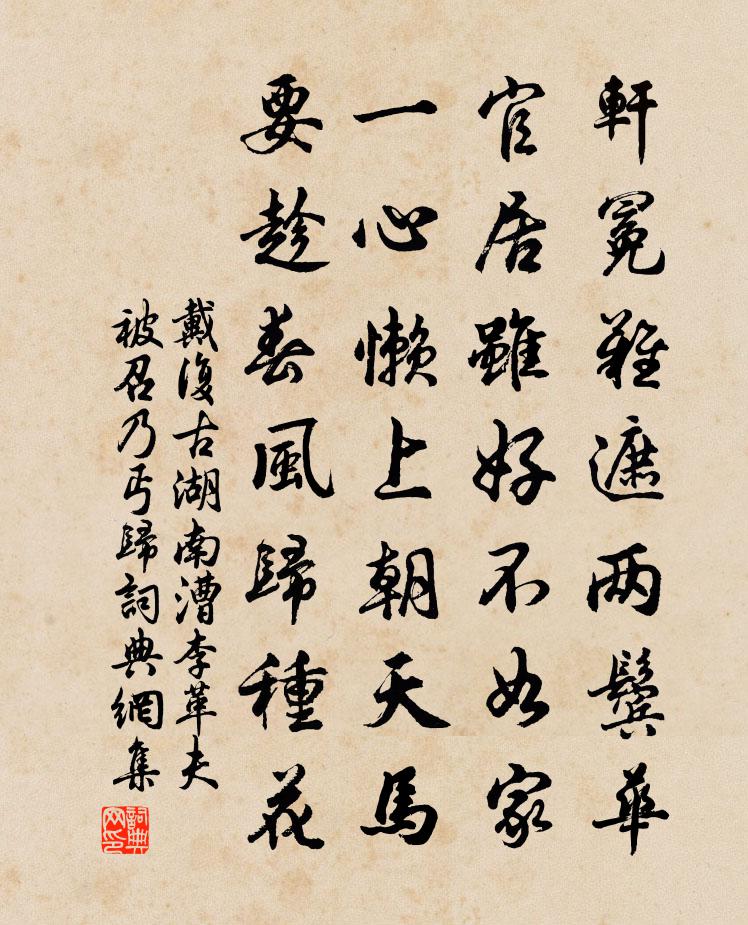 軒冕難遮两鬓華
官居雖好不如家
一心懶上朝天馬
要趁春風歸種花
戴復古湖南漕李革夫
被召乃丐歸詞典網集
詞典网印